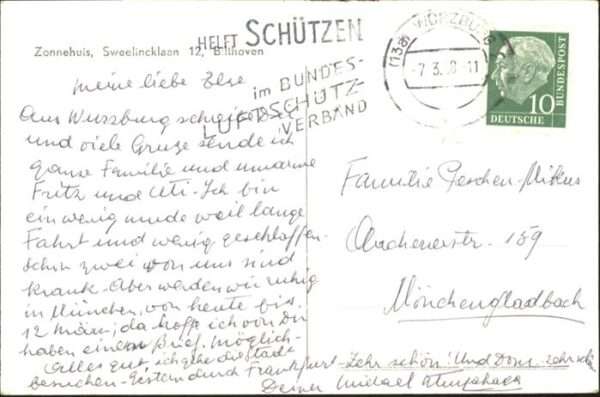 Zonnehuis, Sweelincklaan 12, Bilthoven
HELFT SCHÜTZEN
im BUNDES-
LUFTSCHUTZ-
VERBAND
(13a) WÜRZBURG
-7.3. 8.-11
10
DEUTSCHE
BUNDESPOST
meine liebe Else
Aus Wurzburg schreibe
und viele Gruze sende ich
ganse Familie und umarme
Fritz und Uti. Ich bin
ein wenig mude weil lange
Fahrt und wenig geschlaffen.
Schon zwei von uns sind
krank. Aber werden wir ruhig
in München, von heute bis
12 März; da hoffe ich von Du
haben einen Brief. Möglich-
Alles gut, ich gehe die Stadt
besuchen. Gestern durch Frankfurt. Sehr schön! Und Dom. sehr
Deiner Michael
Familie
Aachenerstr. 159
Mönchengladbach